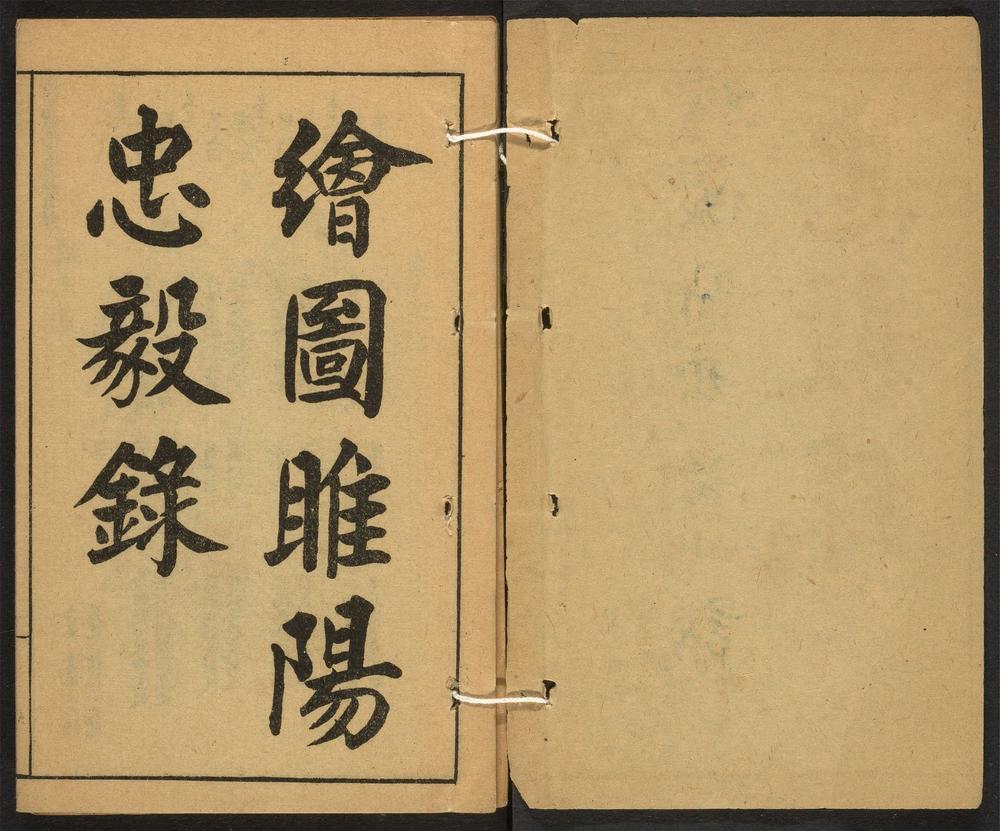 繪圖睢陽
忠毅錄